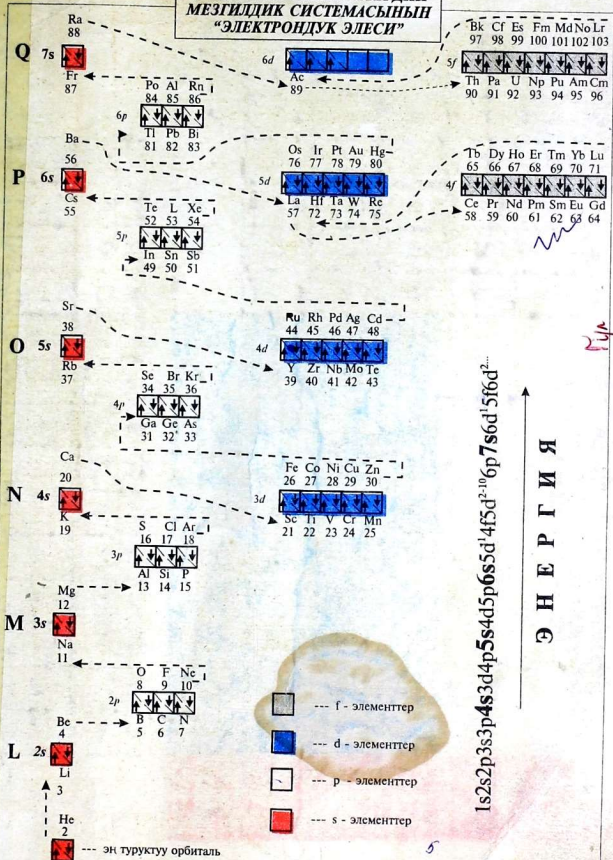 МЕЗГИЛДИК СИСТЕМАСЫНЫН
"ЭЛЕКТРОНДУК ЭЛЕСИ"
Ra
88
Q 7s
Fr
87
6d
Ac
89
Bk Cf Es Fm Md No Lr
97 98 99 100 101 102 103
5f
Th Pa U Np Pu Am Cm
90 91 92 93 94 95 96
Po Al Rn
84 85 86
6p
Tl Pb Bi
81 82 83
Ba
56
P 6s
Cs
55
Os Ir Pt Au Hg
76 77 78 79 80
5d
La Hf Ta W Re
57 72 73 74 75
Tb Dy Ho Er Tm Yb Lu
65 66 67 68 69 70 71
4f
Ce Pr Nd Pm Sm Eu Gd
58 59 60 61 62 63 64
Te L Xe
52 53 54
5p
In Sn Sb
49 50 51
Sr
38
O 5s
Rb
37
Ru Rh Pd Ag Cd
44 45 46 47 48
4d
Y Zr Nb Mo Te
39 40 41 42 43
Se Br Kr
34 35 36
4p
Ga Ge As
31 32 33
Ca
20
N 4s
K
19
Fe Co Ni Cu Zn
26 27 28 29 30
3d
Sc Ti V Cr Mn
21 22 23 24 25
S Cl Ar
16 17 18
3p
Al Si P
13 14 15
Mg
12
M 3s
Na
11
O F Ne
8 9 10
2p
B C N
5 6 7
Be
4
L 2s
Li
3
He
2
--- эң туруктуу орбиталь
--- f - элементтер
--- d - элементтер
--- p - элементтер
--- s - элементтер
1s2s2p3s3p4s3d4p5s4d5p6s5d¹4f5d²⁻¹⁰6p7s6d¹5f6d²...
ЭНЕРГИЯ
5